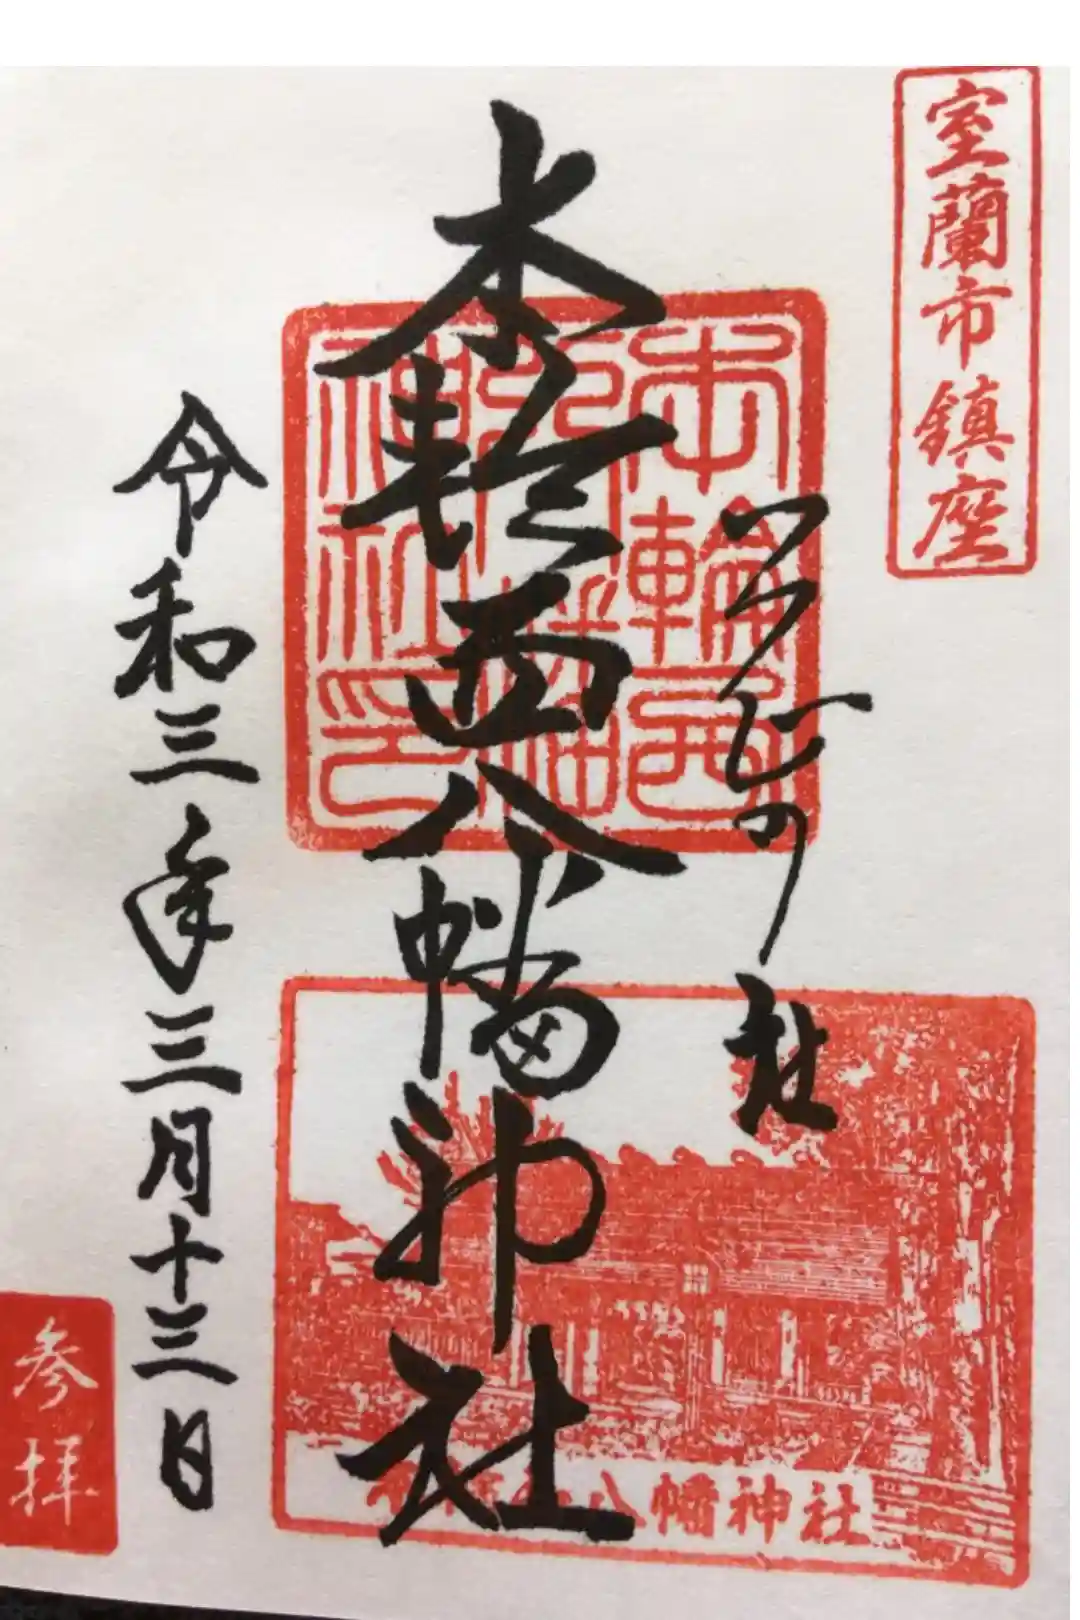 室蘭市鎮座
本輪西八幡神社
本輪西
八幡
神社印
令和三年三月十三日
八幡神社
参拝